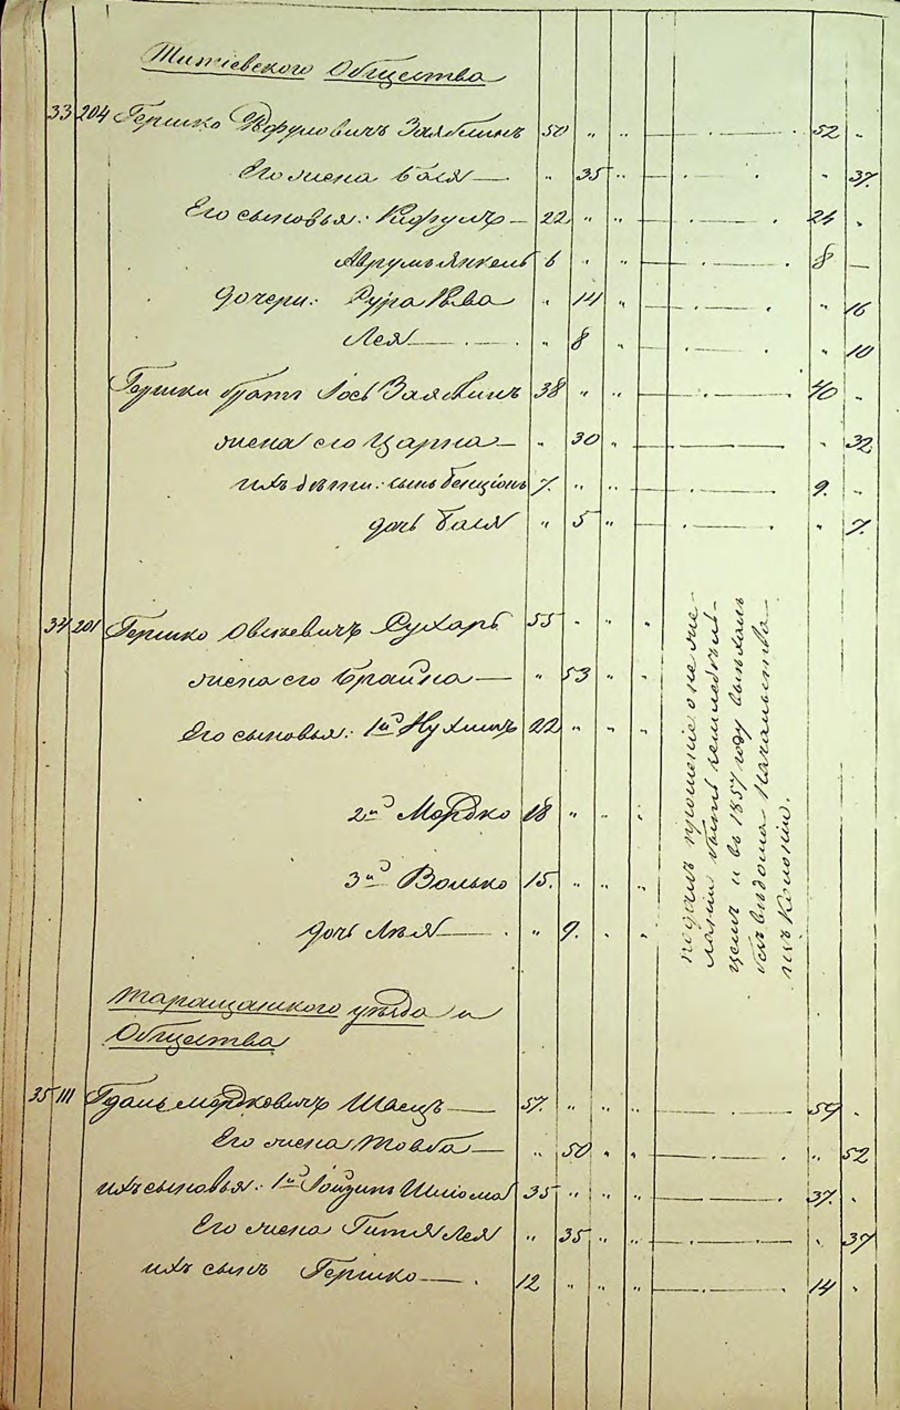 Титіевского Общества
33 204 Гершко Юфумовичъ Заяблинъ 50 „ „ 52 „
Его жена Бася „ 35 „ „ 37.
Его сыновья: 22 „ „ 24 „
Аврумъ Янкель 6 „ „ 8 —
дочери: Сура „ 14 „ „ 16
Лея „ 8 „ „ 10
Гершки братъ Іось 38 „ „ 40 „
жена его Царна „ 30 „ „ 32
ихъ дѣти: сынъ Бенціонъ 7. „ „ 9. „
дочь Бася „ 5 „ „ 7.
34 201 Гершко Овсіевичъ Сухаръ 55 „ „ „
жена его Брайна „ 53 „ „
Его сыновья: 1й Нухимъ 22 „ „ „
2й Мордко 18 „ „ „
3й Волько 15. „ „ „
дочь Лея „ 9. „ „
подалъ прошеніе о неже-
ланіи быть земледѣль-
цемъ и въ 1857 году выѣхалъ
безъ вѣдома Начальства
изъ Колоніи.
Таращанского уѣзда и
Общества
35 111 Гдаль Мордковичъ Шаецъ 57. „ „ „ 59 „
Его жена Товба „ 50 „ „ „ 52
ихъ сыновья: 1й Шлома 35 „ „ „ 37. „
Его жена Гитля Лея „ 35 „ „ „ 37
ихъ сынъ Гершко 12 „ „ „ 14 „